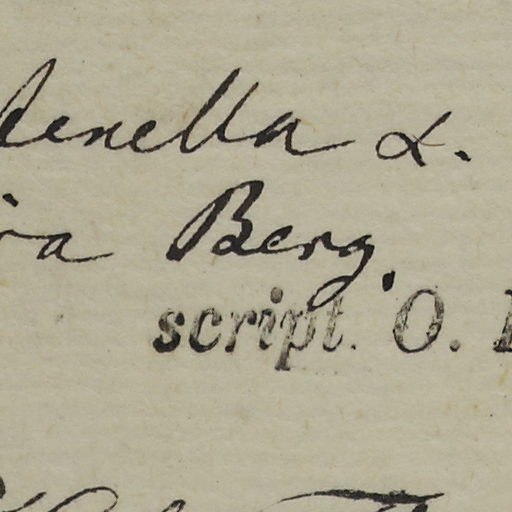 tenella L.
ra Berg.
script. O.